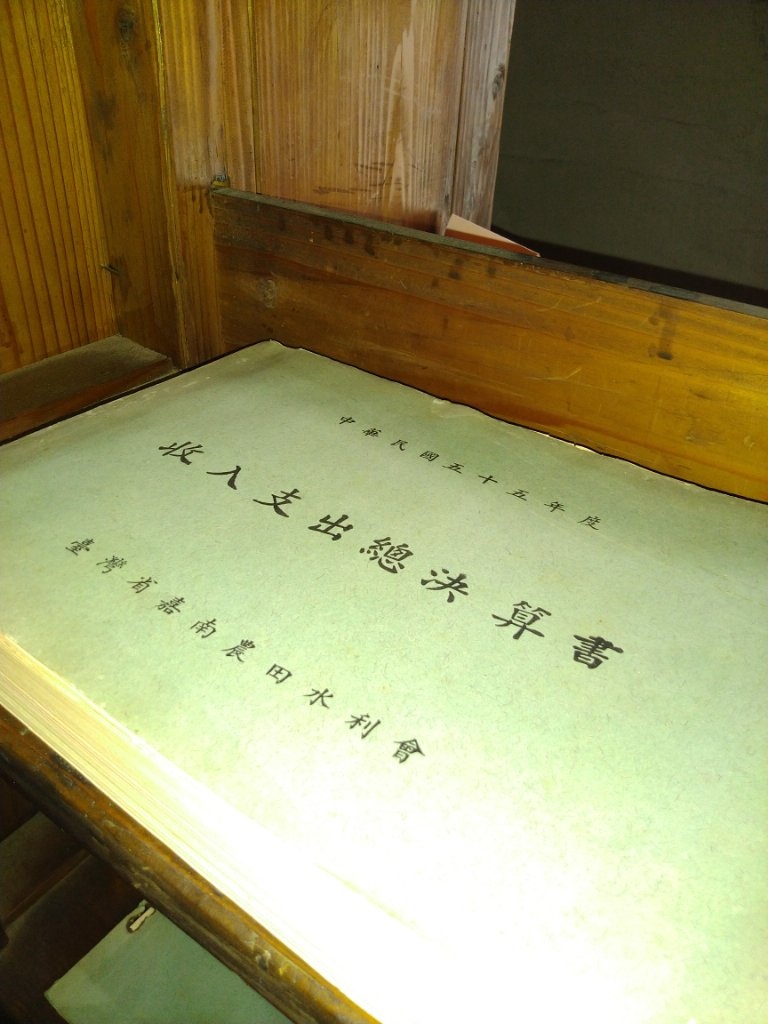 中華民國五十五年度
收入支出總決算書
臺灣省嘉南農田水利會